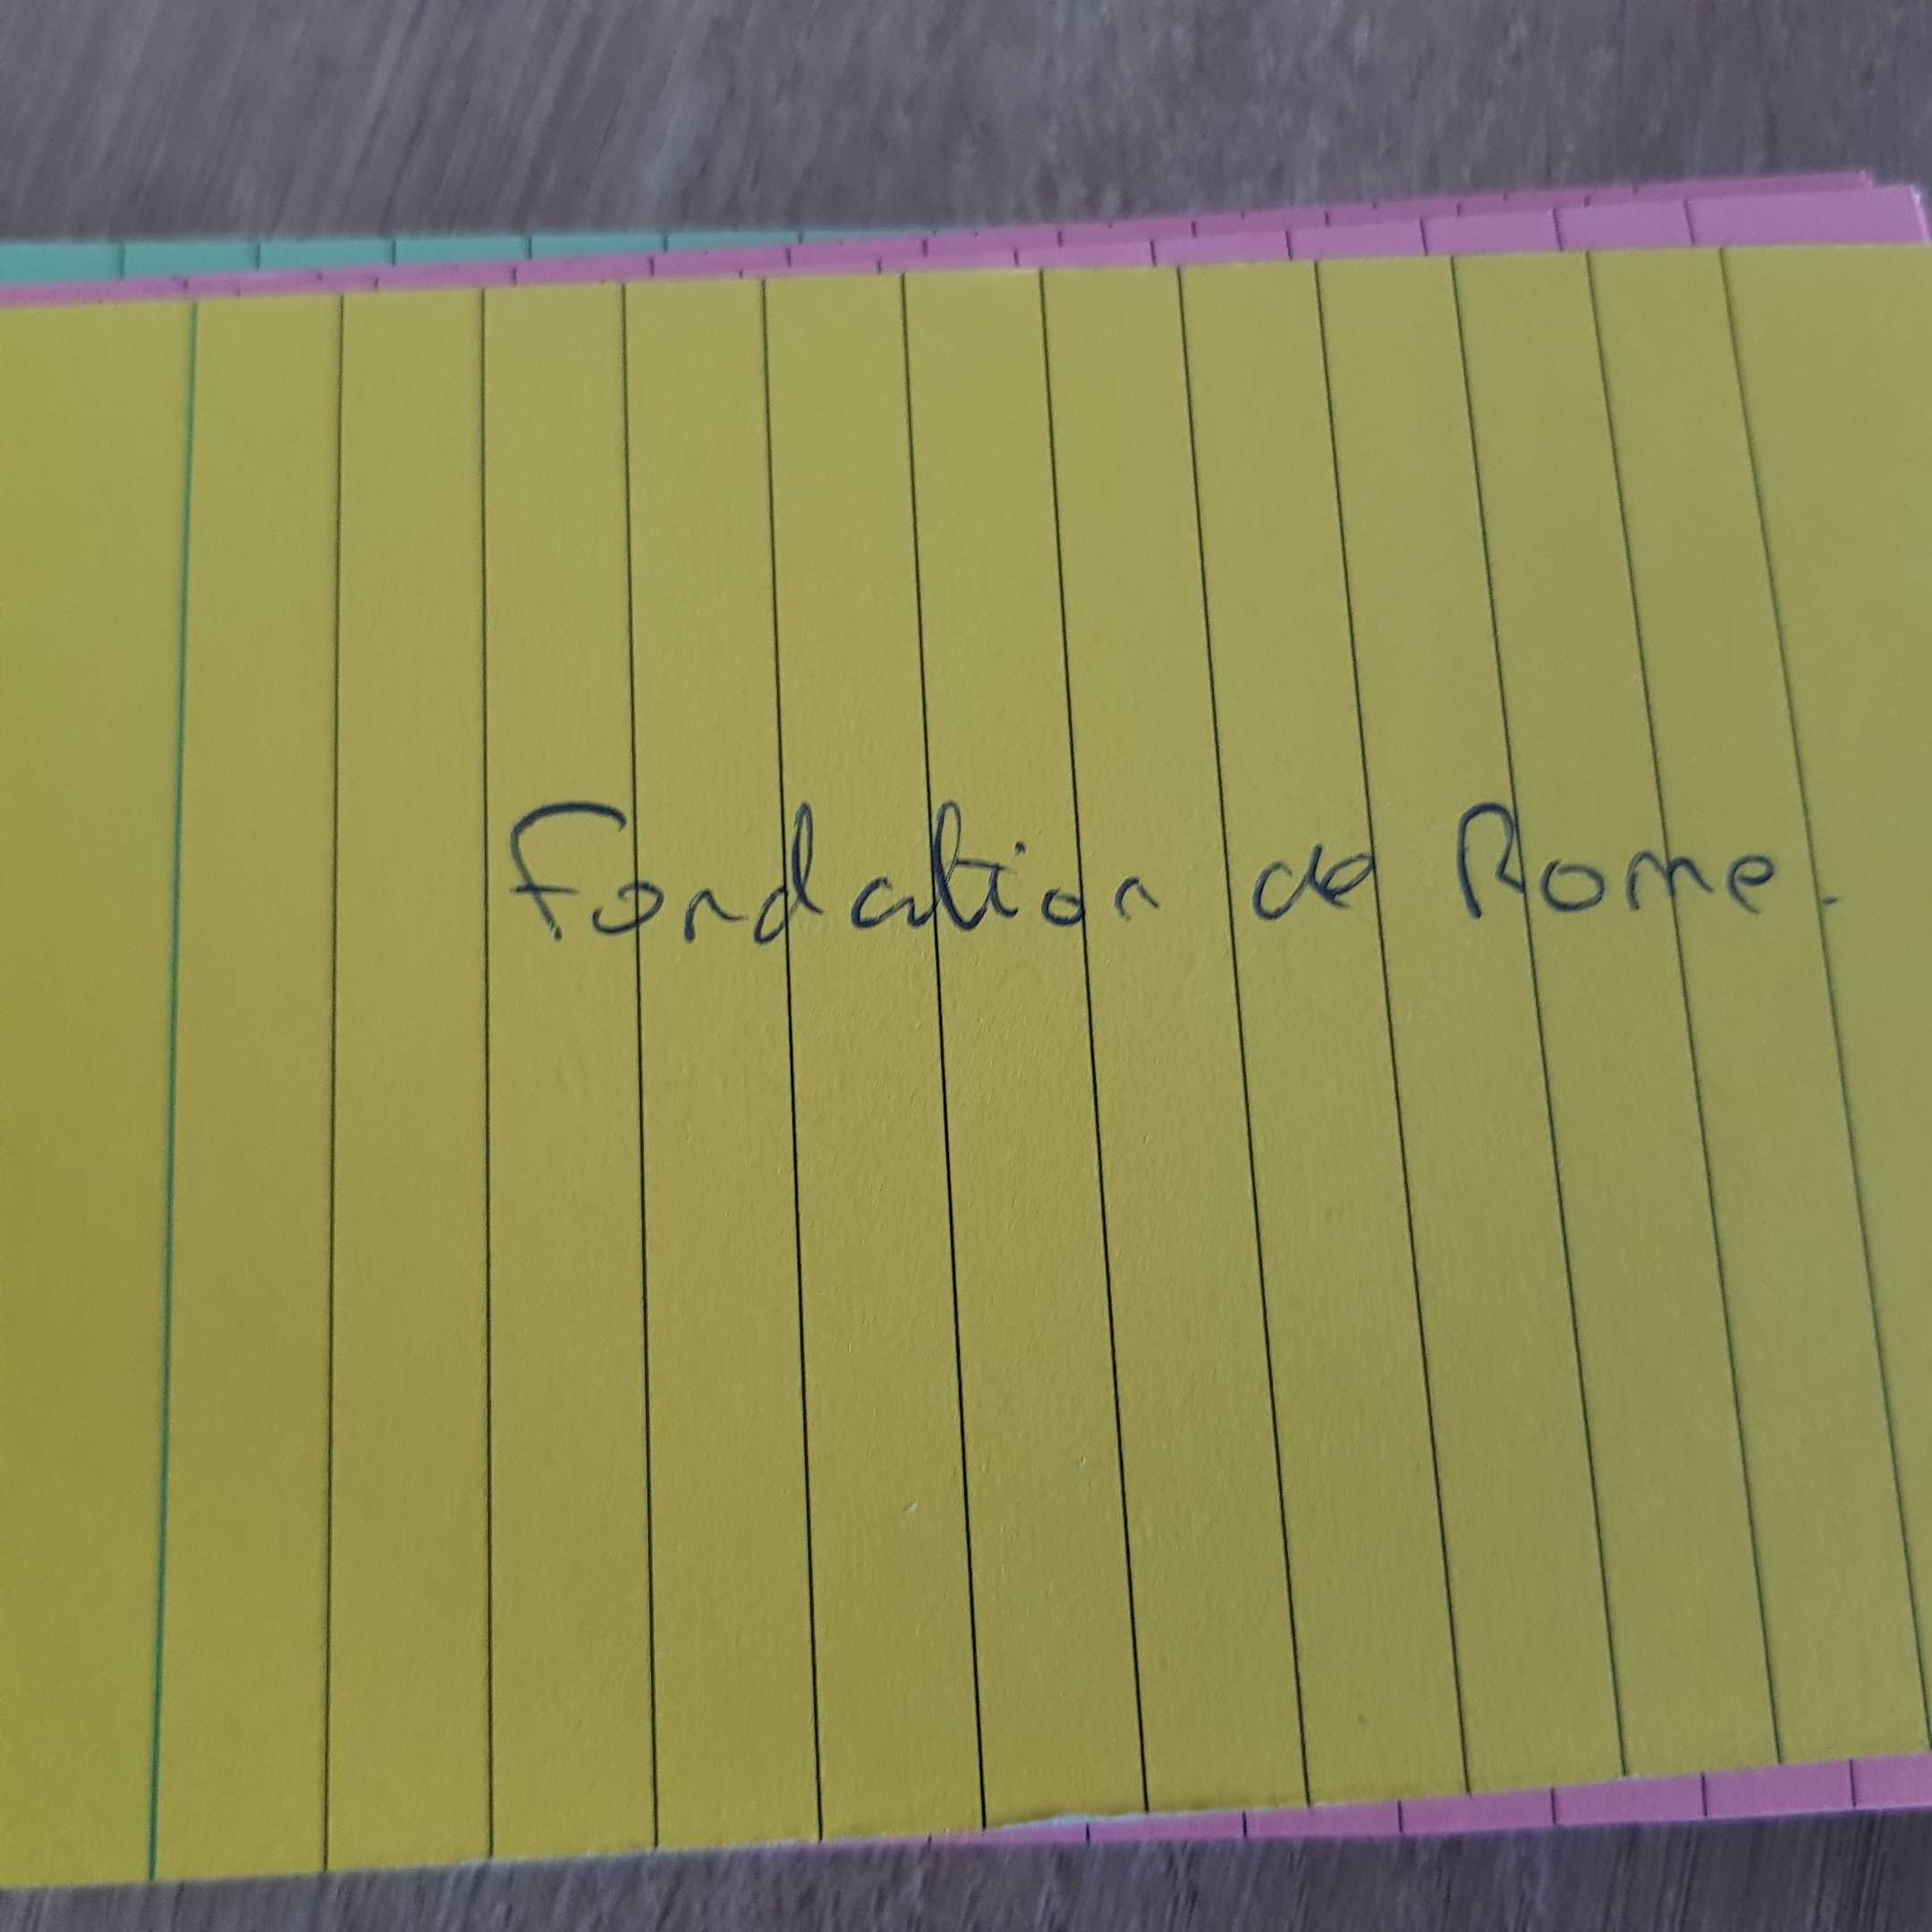 Fondation de Rome.